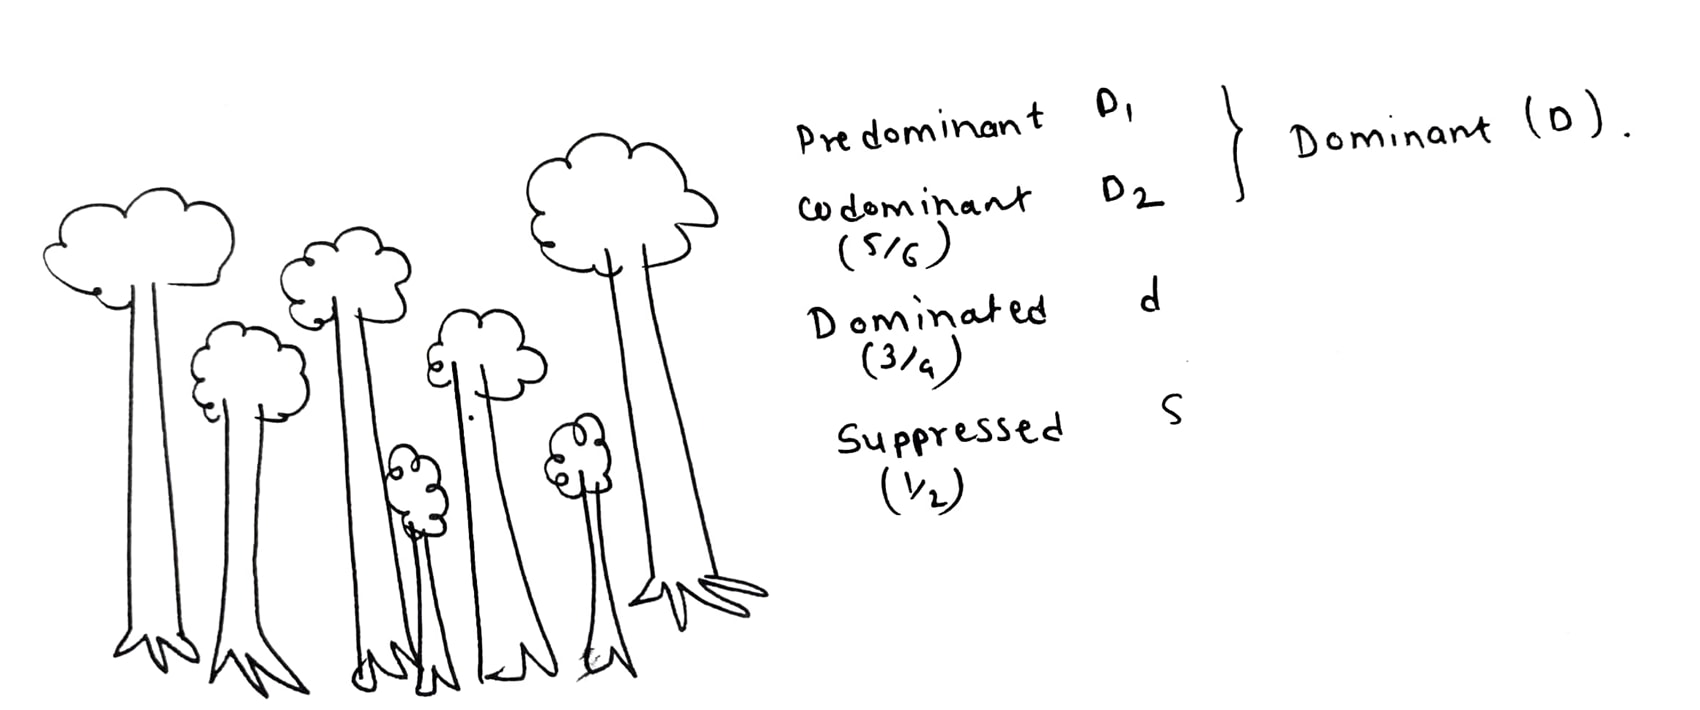 Predominant D1 } Dominant (D).
Codominant D2
(5/6)
Dominated d
(3/4)
Suppressed S
(1/2)